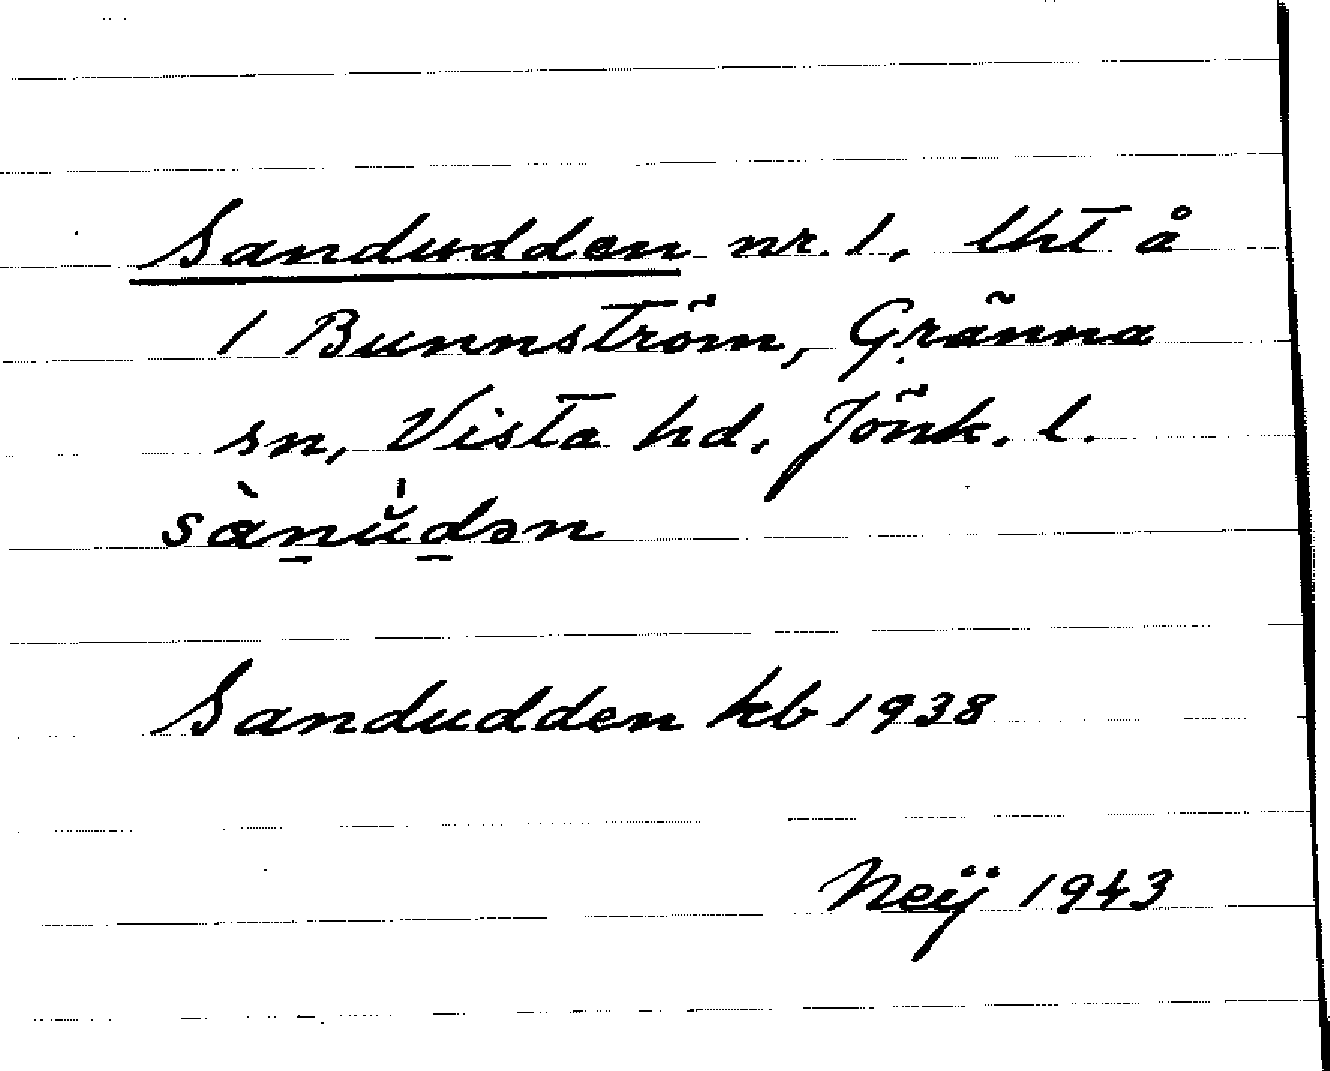 Sandudden nr. 1, lht å
1 Bunnström, Gränna
sn, Vista hd, Jönk. l.
sànu̍̆dən
Sandudden kb 1938
Neij 1943